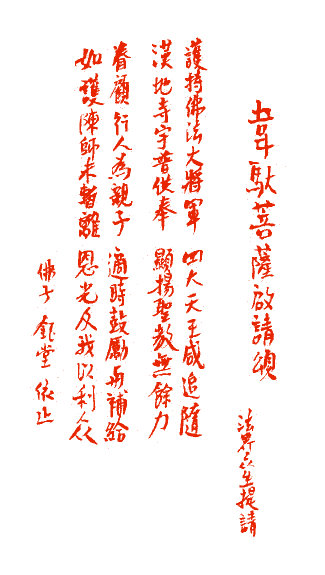 韋馱菩薩啟請頌
法界眾生提請
護持佛法大將軍 四大天王咸追隨
漢地寺宇普供奉 顯揚聖教無餘力
眷顧行人為親子 適時鼓勵與補給
如護陳師未暫離 恩光及我以利人
佛子 鈺堂 依止